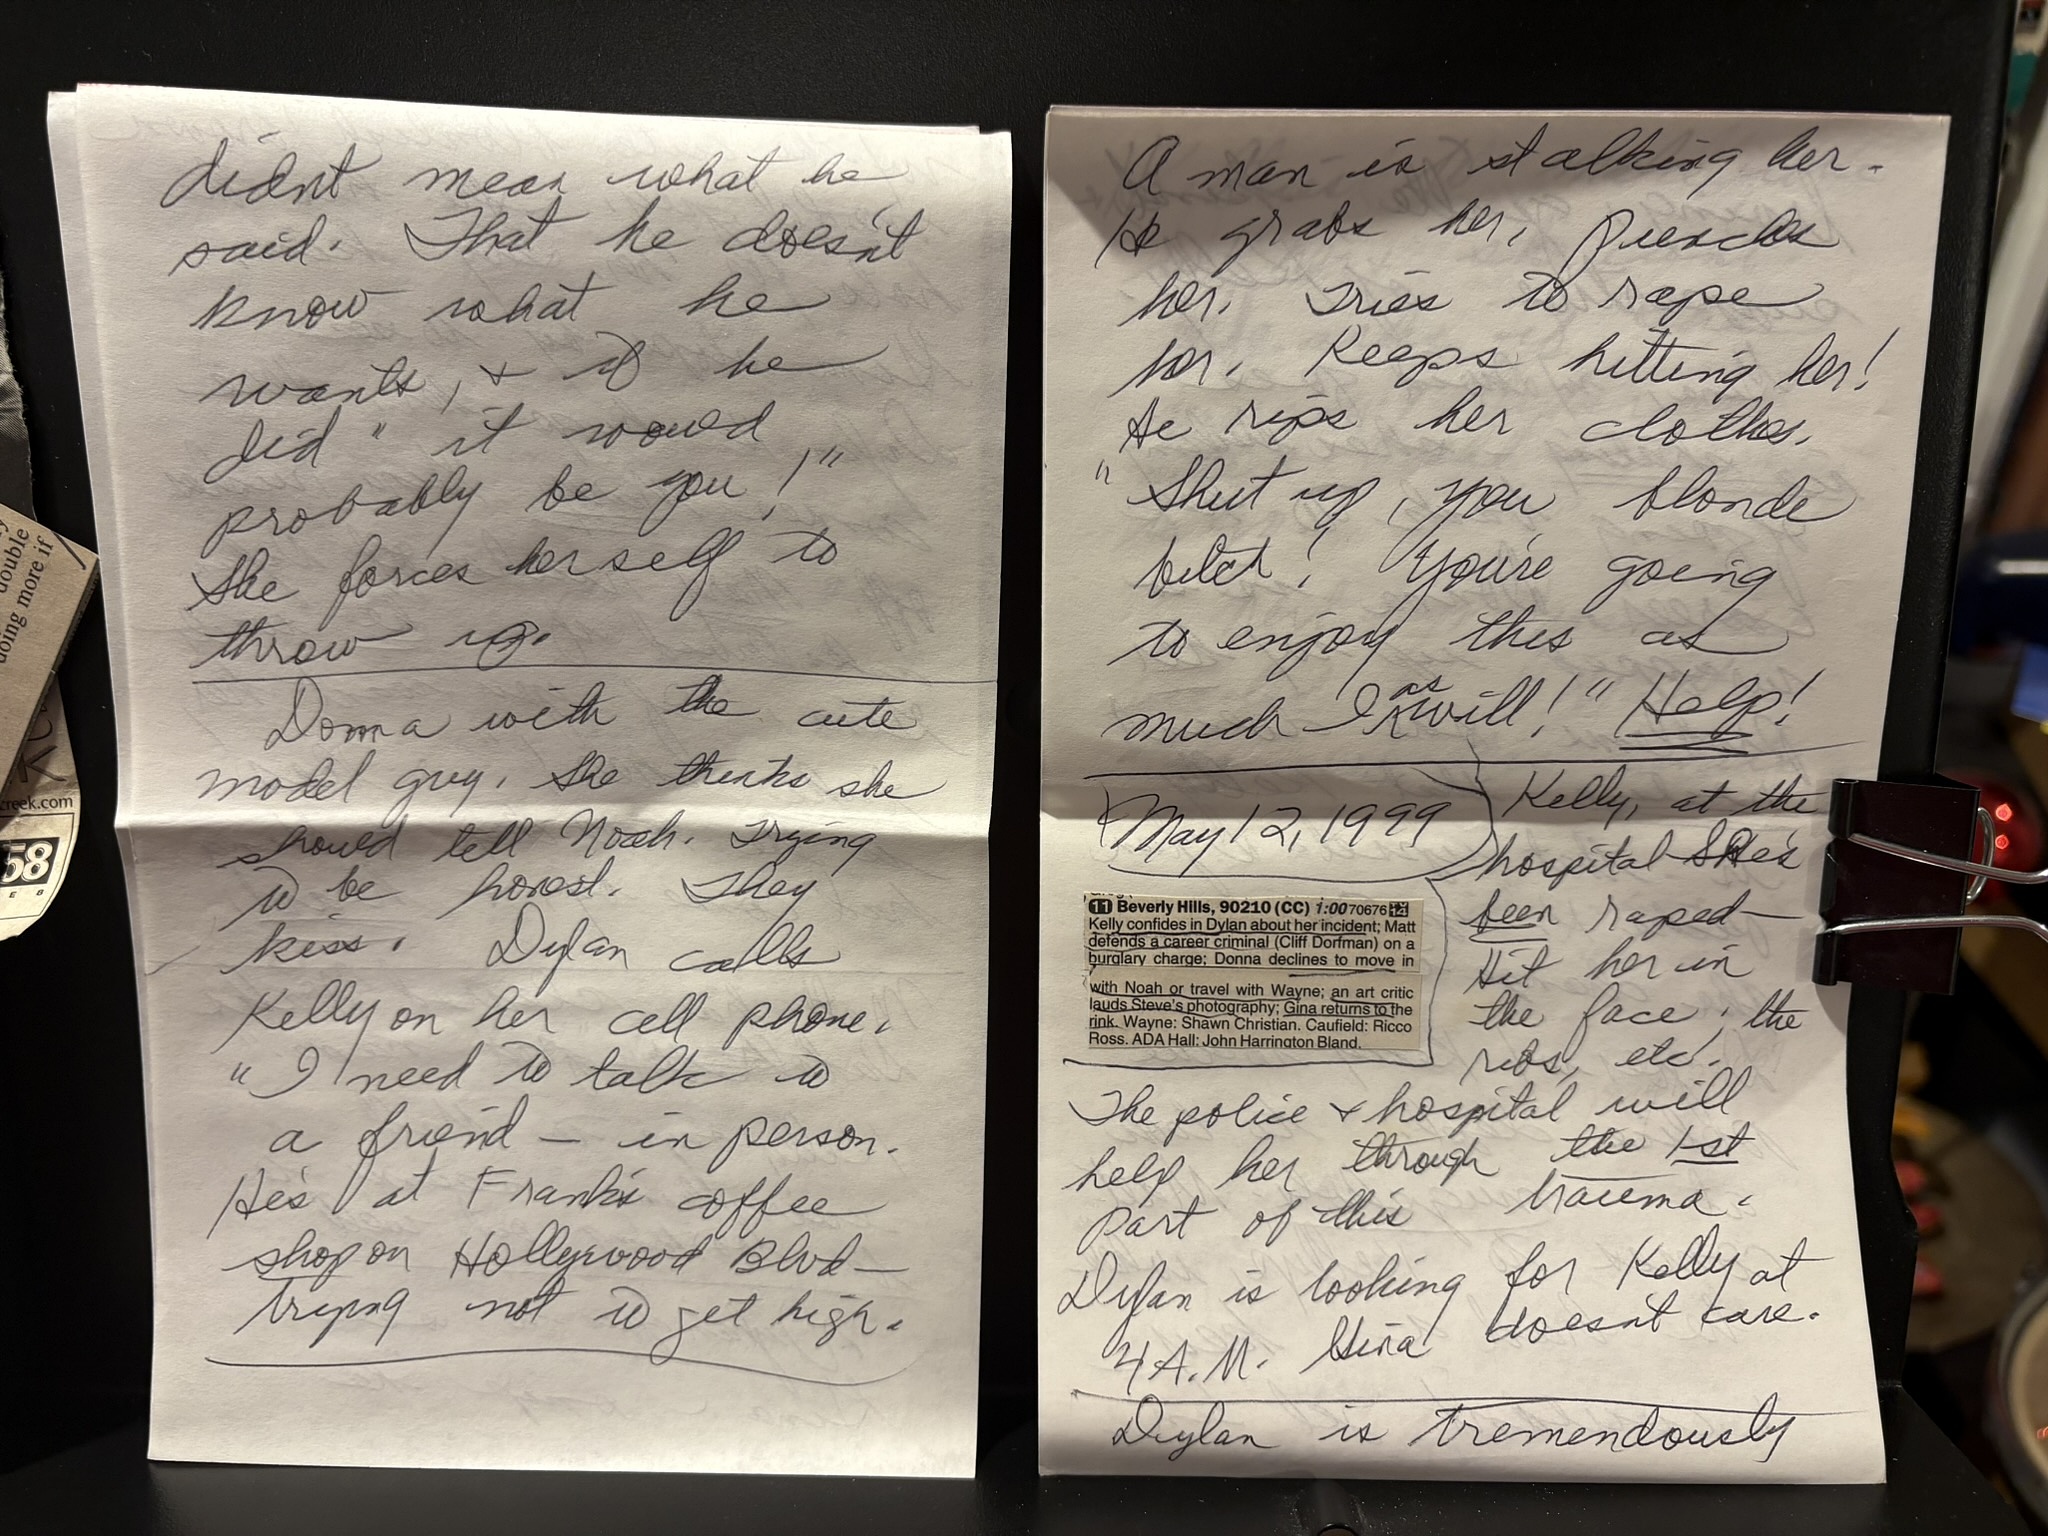 didn't mean what he
said. That he doesn't
know what he
wants, & if he
did "it would
probably be you!"
She forces herself to
throw up.
Donna with the cute
model guy. She thinks she
should tell Noah. Trying
to be honest. They
kiss. Dylan calls
Kelly on her cell phone.
"I need to talk to
a friend — in person.
He's at Frank's coffee
shop on Hollywood Blvd —
trying not to get high.
A man is stalking her.
He grabs her, punches
her. Tries to rape
her. Keeps hitting her!
He rips her clothes.
"Shut up, you blonde
bitch! You're going
to enjoy this as
much I as will!" Help!
May 12, 1999
Kelly, at the
hospital She's
been raped —
Hit her in
the face, the
ribs, etc.
11 Beverly Hills, 90210 (CC) 1:00 70676
Kelly confides in Dylan about her incident; Matt
defends a career criminal (Cliff Dorfman) on a
burglary charge; Donna declines to move in
with Noah or travel with Wayne; an art critic
lauds Steve's photography; Gina returns to the
rink. Wayne: Shawn Christian. Caufield: Ricco
Ross. ADA Hall: John Harrington Bland.
The police & hospital will
help her through the 1st
part of this trauma.
Dylan is looking for Kelly at
4 A.M. Gina doesn't care.
Dylan is tremendously
double
doing more if
creek.com
58